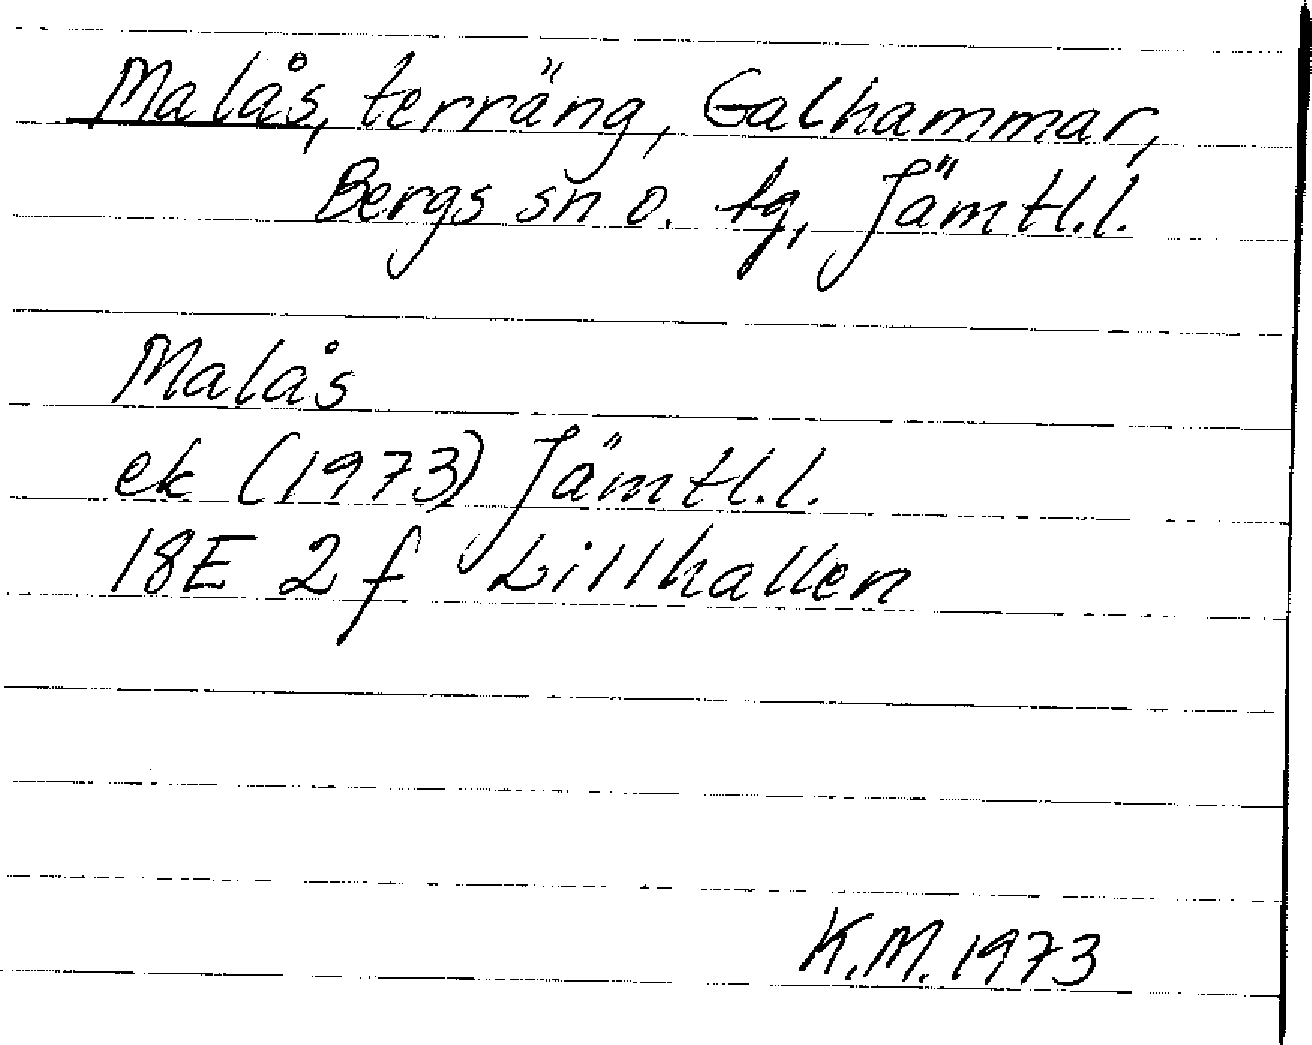 Malås, terräng, Galhammar,
Bergs sn o. tg, Jämtl.l.
Malås
ek (1973) Jämtl.l.
18E 2f Lillhallen
K.M. 1973